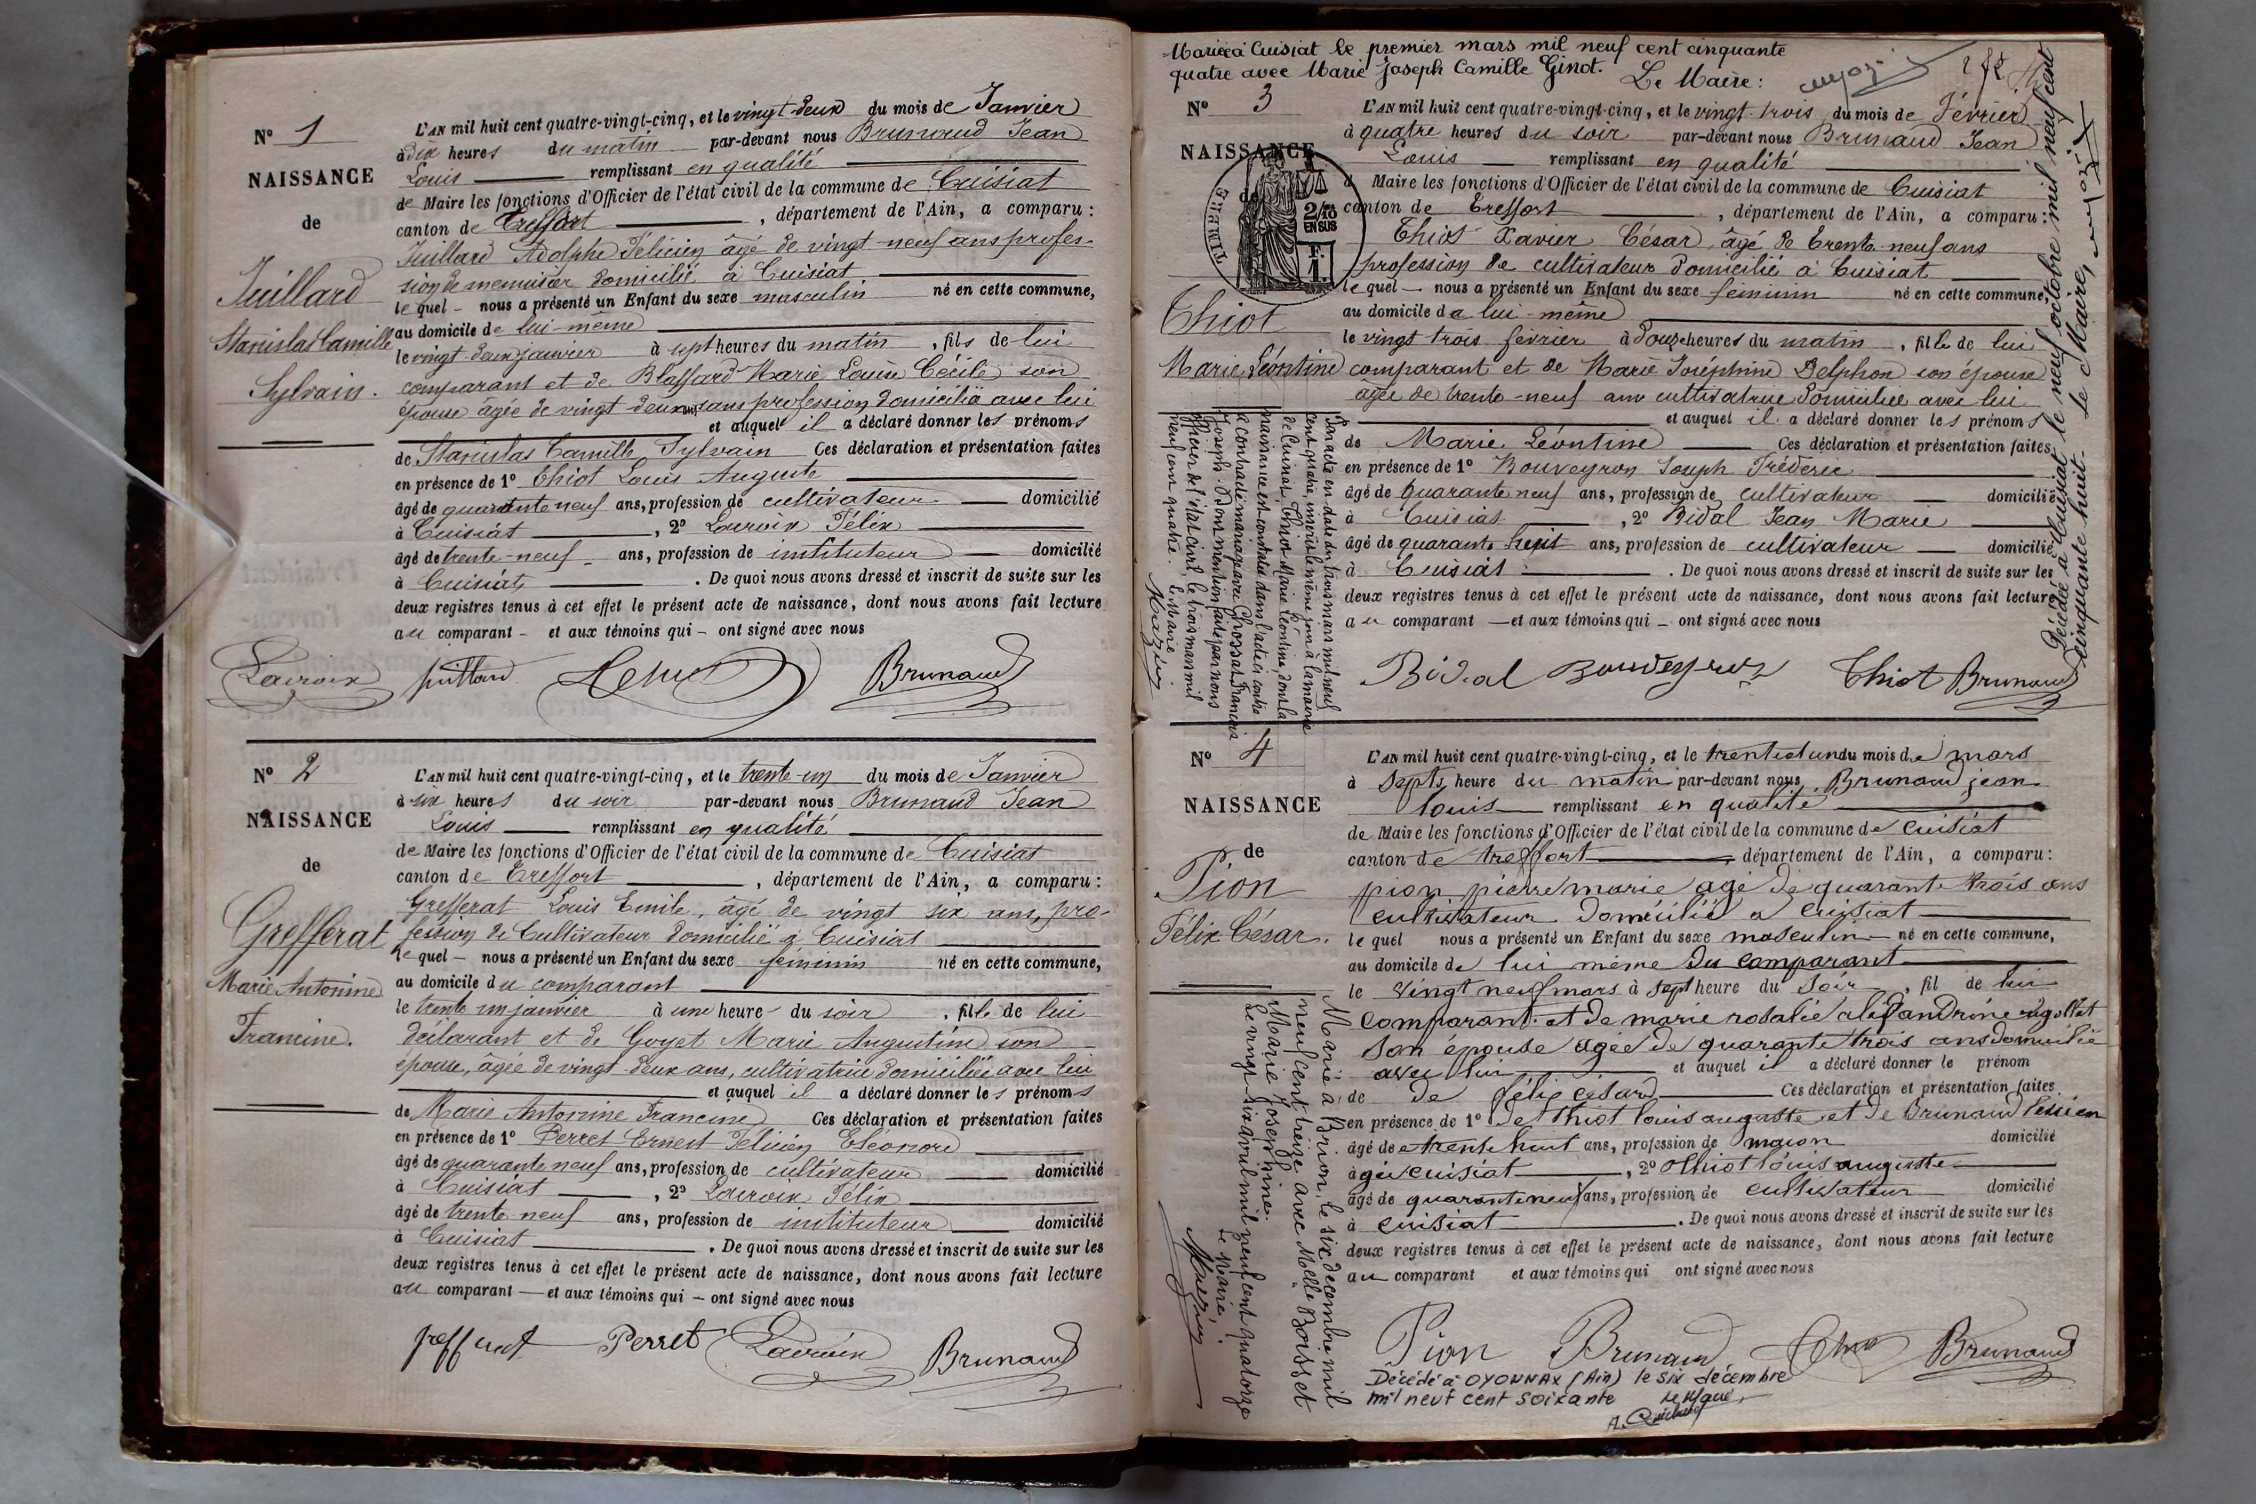 N° 1
NAISSANCE
de
Juillard
Stanislas Camille
Sylvain.
L'AN mil huit cent quatre-vingt-cinq, et le vingt deux du mois de Janvier
à dix heures du matin par-devant nous Brunaud Jean
Louis remplissant en qualité
de Maire les fonctions d'Officier de l'état civil de la commune de Cuisiat
canton de Treffort, département de l'Ain, a comparu:
Juillard Adolphe Félicien âgé de vingt-neuf ans profes-
sion de menuisier domicilié à Cuisiat
lequel nous a présenté un Enfant du sexe masculin né en cette commune,
au domicile de lui-même
le vingt-deux janvier à sept heures du matin, fils de lui
comparant et de Blassard Marie Louise Cécile son
épouse âgée de vingt deux ans sans profession domiciliée avec lui
et auquel il a déclaré donner les prénoms
de Stanislas Camille Sylvain Ces déclaration et présentation faites
en présence de 1° Thiot Louis Auguste
âgé de quarante neuf ans, profession de cultivateur domicilié
à Cuisiat, 2° Lacroix Félix
âgé de trente-neuf ans, profession de instituteur domicilié
à Cuisiat. De quoi nous avons dressé et inscrit de suite sur les
deux registres tenus à cet effet le présent acte de naissance, dont nous avons fait lecture
au comparant et aux témoins qui ont signé avec nous
Lacroix Juillard Brunaud
N° 2
NAISSANCE
de
Grefferat
Marie Antonine
Francine.
L'AN mil huit cent quatre-vingt-cinq, et le trente-un du mois de Janvier
à six heures du soir par-devant nous Brunaud Jean
Louis remplissant en qualité
de Maire les fonctions d'Officier de l'état civil de la commune de Cuisiat
canton de Treffort, département de l'Ain, a comparu:
Grefferat Louis Emile, âgé de vingt six ans, pro-
fession de Cultivateur domicilié à Cuisiat
lequel nous a présenté un Enfant du sexe féminin né en cette commune,
au domicile du comparant
le trente un janvier à une heure du soir, fille de lui
déclarant et de Goyet Marie Augustine son
épouse, âgée de vingt-deux ans, cultivatrice domiciliée avec lui
et auquel il a déclaré donner les prénoms
de Marie Antonine Francine Ces déclaration et présentation faites
en présence de 1° Perret Ernest Félicien Eléonore
âgé de quarante neuf ans, profession de cultivateur domicilié
à Cuisiat, 2° Lacroix Félix
âgé de trente neuf ans, profession de instituteur domicilié
à Cuisiat. De quoi nous avons dressé et inscrit de suite sur les
deux registres tenus à cet effet le présent acte de naissance, dont nous avons fait lecture
au comparant et aux témoins qui ont signé avec nous
Perret Lacroix Brunaud
Mariée à Cuisiat le premier mars mil neuf cent cinquante
quatre avec Marie Joseph Camille Ginot. Le Maire:
N° 3
NAISSANCE
de
TIMBRE
2/10
EN SUS
F.
1.
Thiot
Marie Léontine
L'AN mil huit cent quatre-vingt-cinq, et le vingt trois du mois de Février
à quatre heures du soir par-devant nous Brunaud Jean
Louis remplissant en qualité
d Maire les fonctions d'Officier de l'état civil de la commune de Cuisiat
canton de Treffort, département de l'Ain, a comparu:
Thiot Xavier César âgé de trente-neuf ans
profession de cultivateur domicilié à Cuisiat
lequel nous a présenté un Enfant du sexe féminin né en cette commune,
au domicile d a lui-même
le vingt trois février à douze heures du matin, fille de lui
comparant et de Marie Joséphine Delphon son épouse
âgée de trente-neuf ans cultivatrice domiciliée avec lui
et auquel il a déclaré donner les prénoms
de Marie Léontine Ces déclaration et présentation faites
en présence de 1° Bouveyron Joseph Fréderic
âgé de quarante neuf ans, profession de cultivateur domicilié
à Cuisiat, 2° Bidal Jean Marie
âgé de quarante huit ans, profession de cultivateur domicilié
à Cuisiat. De quoi nous avons dressé et inscrit de suite sur les
deux registres tenus à cet effet le présent acte de naissance, dont nous avons fait lecture
au comparant et aux témoins qui ont signé avec nous
Bidal Bouveyron Thiot Brunaud
Par acte en date du trois mars mil neuf
cent quatre, inscrit le même jour à la mairie
de Cuisiat, Thiot Marie Léontine, dont la
naissance est constatée dans l'acte ci-contre
a contracté mariage avec Chossat François
Joseph. Dont mention faite par nous
officier de l'état civil, le trois mars mil
neuf cent quatre. Le Maire
Décédée à Cuisiat le neuf octobre mil neuf cent
cinquante huit. Le Maire,
N° 4
NAISSANCE
de
Pion
Félix César.
L'AN mil huit cent quatre-vingt-cinq, et le trente et un du mois de mars
à septs heure du matin par-devant nous Brunaud jean
louis remplissant en qualité
de Maire les fonctions d'Officier de l'état civil de la commune de Cuisiat
canton de treffort, département de l'Ain, a comparu:
pion pierre marie agé de quarante trois ans
cultivateur domicilié a cuisiat
lequel nous a présenté un Enfant du sexe masculin né en cette commune,
au domicile de lui même du comparant
le vingt neuf mars à sept heure du soir, fil de lui
comparant et de marie rosalie alexandrine rigollet
son épouse agée de quarante trois ans domicilié
avec lui et auquel il a déclaré donner le prénom
de de félix césar Ces déclaration et présentation faites
en présence de 1° de thiot louis auguste et de Brunaud
âgé de trente huit ans, profession de maçon domicilié
à cuisiat, 2° thiot louis auguste
âgé de quarante neuf ans, profession de cultivateur domicilié
à cuisiat. De quoi nous avons dressé et inscrit de suite sur les
deux registres tenus à cet effet le présent acte de naissance, dont nous avons fait lecture
au comparant et aux témoins qui ont signé avec nous
Pion Brunaud Brunaud
Marié à Brion, le six décembre mil
neuf cent treize avec Melle Boisset
Marie Joséphine.
Le vingt-six avril mil neuf cent quatorze
Le Maire.
Décédé à OYONNAX (Ain) le six décembre
mil neuf cent soixante Le Maire,